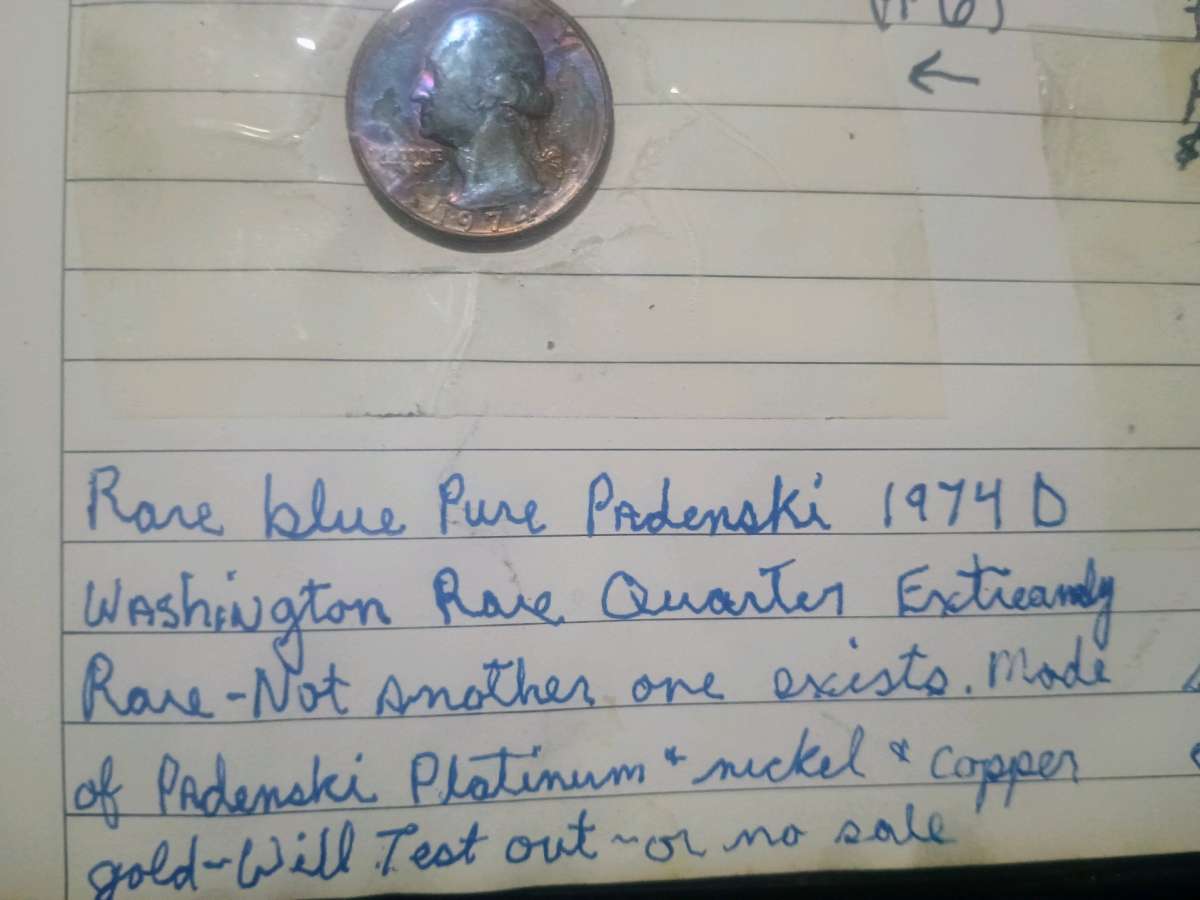 1974
Rare blue Pure PAdenski 1974 D
WAshINgton Rare Quarter Extreamly
Rare - Not another one exists. Made
of PAdenski Platinum & nickel & copper
gold - Will Test out - or no sale